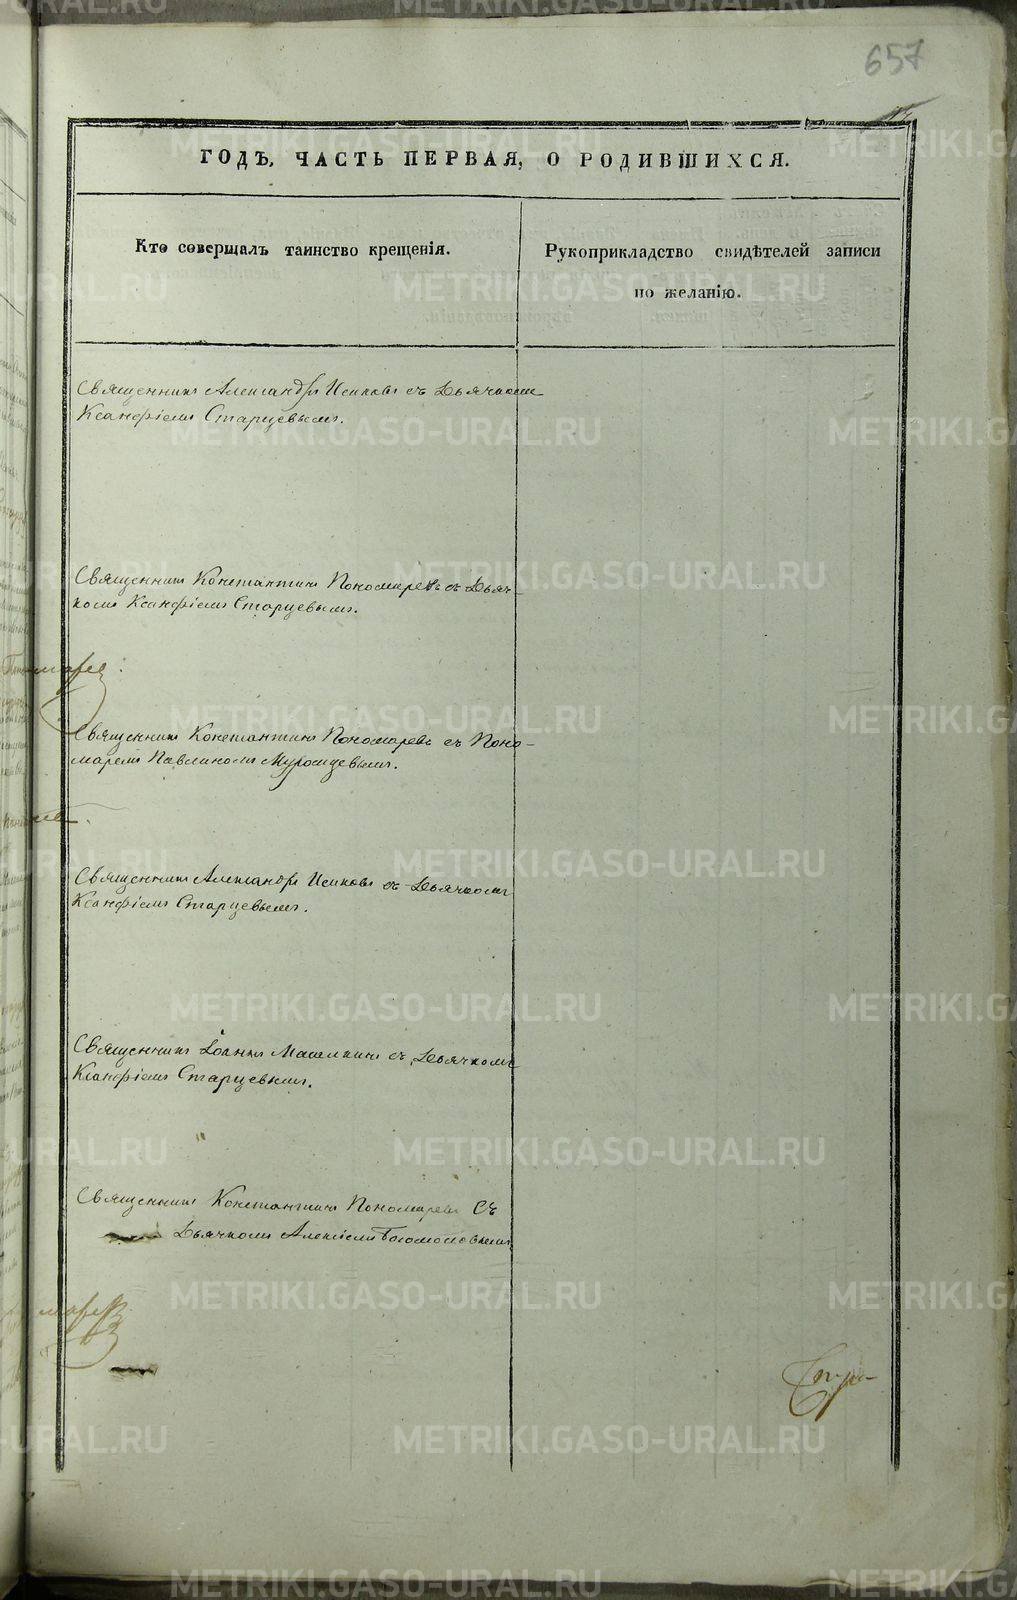 657
ГОДЪ, ЧАСТЬ ПЕРВАЯ, О РОДИВШИХСЯ.
Кто совершалъ таинство крещенія.
Рукоприкладство свидѣтелей записи
по желанію.
Священникъ Александръ Исиковъ съ Дьячкомъ
Ксанфіемъ Старцевымъ.
Священникъ Константинъ Пономаревъ съ Дьяч-
комъ Ксанфіемъ Старцевымъ.
Священникъ Константинъ Пономаревъ съ Поно-
маремъ Павлиномъ Муромцевымъ.
Священникъ Александръ Исиковъ съ Дьячкомъ
Ксанфіемъ Старцевымъ.
Священникъ Іоаннъ съ Дьячкомъ
Ксанфіемъ Старцевымъ.
Священникъ Константинъ Пономаревъ съ
Дьячкомъ Алексіемъ Богомоловымъ
METRIKI.GASO-URAL.RU